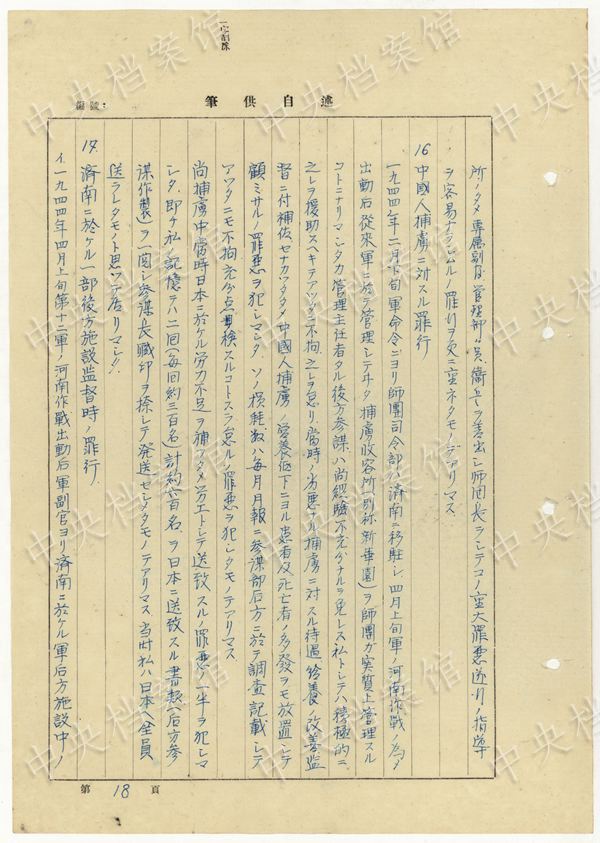 一字削除
述自供筆
編號：
所ノタメ専属副官管理部ヨリ兵衛兵ヲ差出シ師団長ヲシテコノ重大罪悪遂行ノ指導
ヲ容易ナラシムルノ罪行ヲ更ニ重ネタモノデアリマス、
16 中國人捕虜ニ対スル罪行
一九四四年二月下旬軍命令ニヨリ師團司令部ハ済南ニ移駐シ四月上旬軍ノ河南作戰ノ為メ
出動后従来軍ニ於テ管理シテヰタ捕虜収容所（別称新華園）ヲ師團ガ実質上管理スル
コトニナリマシタカ管理主任者タル後方参謀ハ尚経驗不充分ナルヲ免レス私トシテハ積極的ニ
之レヲ援助スヘキテアツタニ不拘之レヲ怠リ當時ノ劣悪ナル捕虜ニ対スル待遇給養ノ改善監
督ニ付補佐セナカツタタメ中國人捕虜ノ営養低下ニヨル患者及死亡者ノ多發ヲモ放置シテ
顧ミサルノ罪悪ヲ犯シマシタ、ソノ損耗数ハ毎月月報ニ参謀部后方ニ於テ調査記載シテ
アツタニモ不拘充分点検スルコトスラ怠ル罪悪ヲ犯シタモノテアリマス
尚捕虜中當時日本ニ於ケル労力不足ヲ補フタメ労工トシテ送致スルノ罪悪ノ一半ヲ犯シマ
シタ、即チ私ノ記憶テハ二回（毎回約三百名）計約六百名ヲ日本ニ送致スル書類（后方参
謀作製）ヲ一閲シ参謀長職印ヲ捺シテ発送セシメタモノデアリマス当时私ハ日本ヘ全員
送ラレタモノト思ツテ居リマシタ!!
17. 済南ニ於ケル一部後方施設監督時ノ罪行
イ、一九四四年四月上旬第十二軍ノ河南作戰出動后軍副官ヨリ済南ニ於ケル軍后方施設中ノ
第 18 頁
中央档案馆